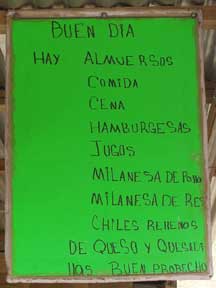 BUEN DIA
HAY ALMUERSOS
COMIDA
CENA
HAMBURGESAS
JUGOS
MILANESA DE POLLO
MILANESA DE RES
CHILES REllENOS
DE QUESO Y QUESADI
llAS BUEN PROBECHO